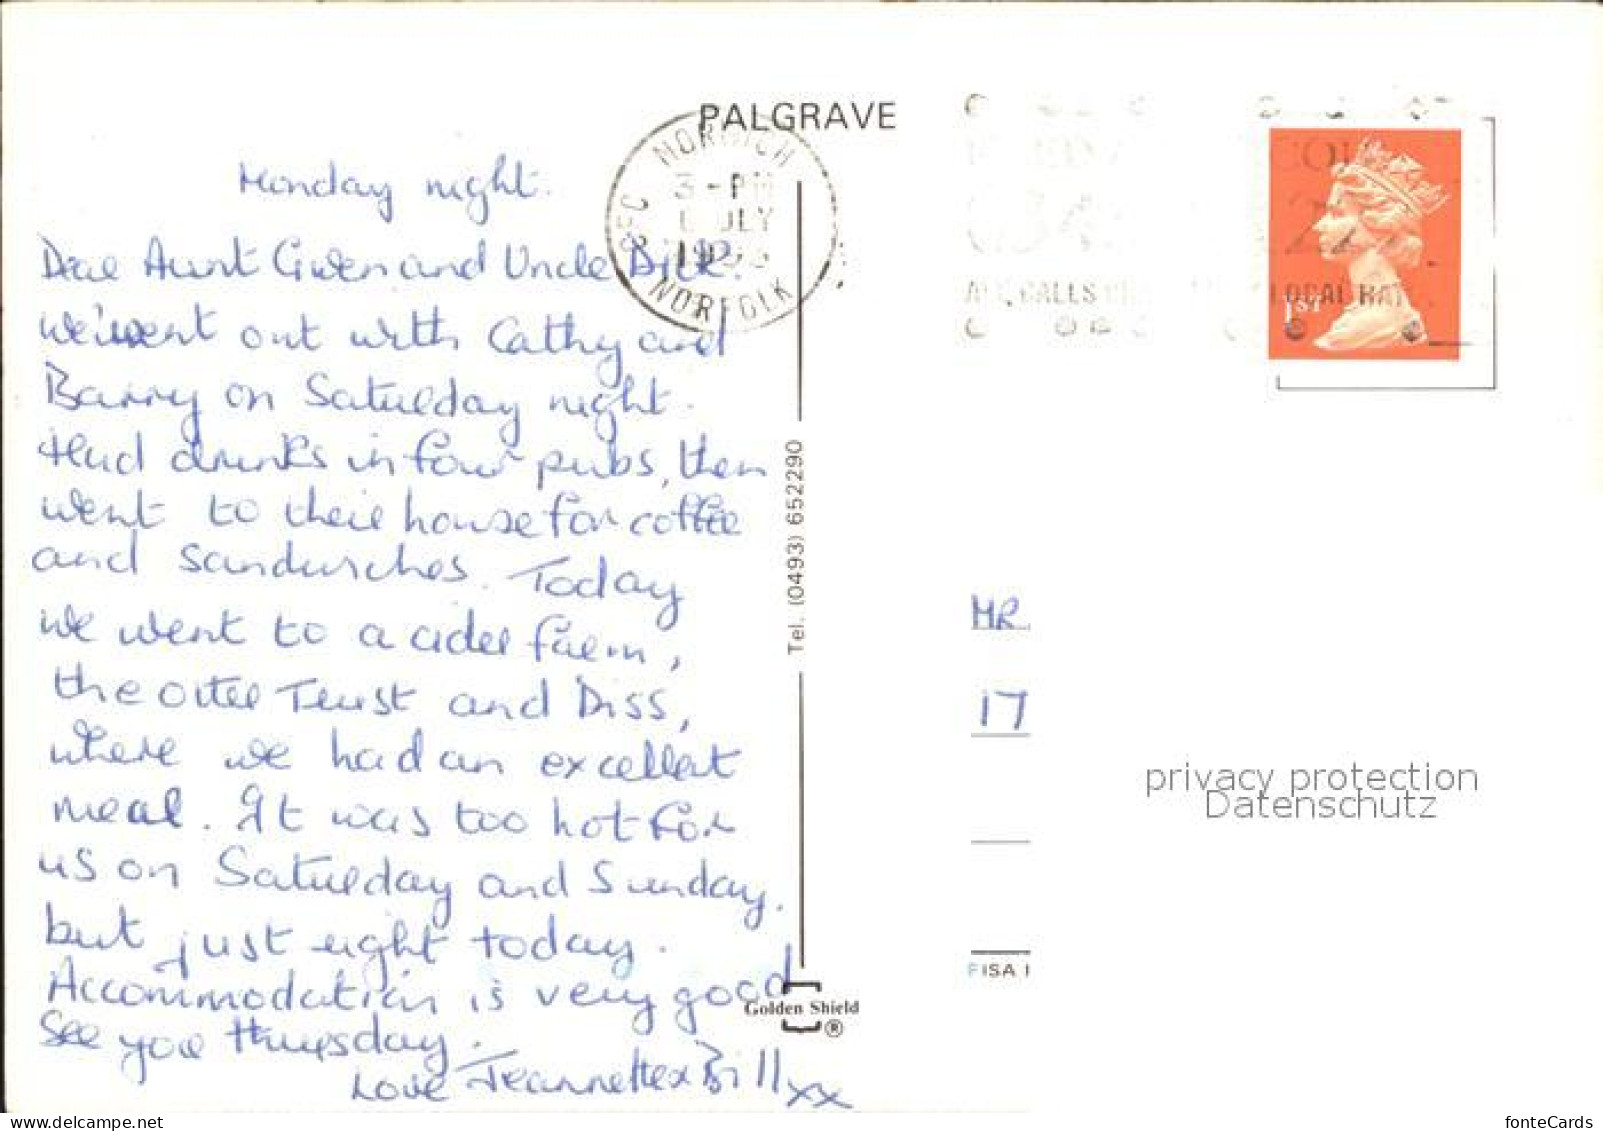 PALGRAVE
NORWICH
3 - PM
JULY
NORFOLK
COL
ALL CALLS LOCAL RAT
1ST
Monday night.
Dear Aunt Gwen and Uncle Dick.
We went out with Cathy and
Barry on Saturday night.
Had drinks in four pubs, then
went to their house for coffee
and sandwiches. Today
we went to a cider farm,
the otter Trust and Diss,
where we had an excellent
meal. It was too hot for
us on Saturday and Sunday.
but just right today.
Accommodation is very good
See you Thursday.
Love Jeannette & Bill xx
Tel. (0493) 652290
Golden Shield
®
MR.
17
privacy protection
Datenschutz
PISA I
fonteCards